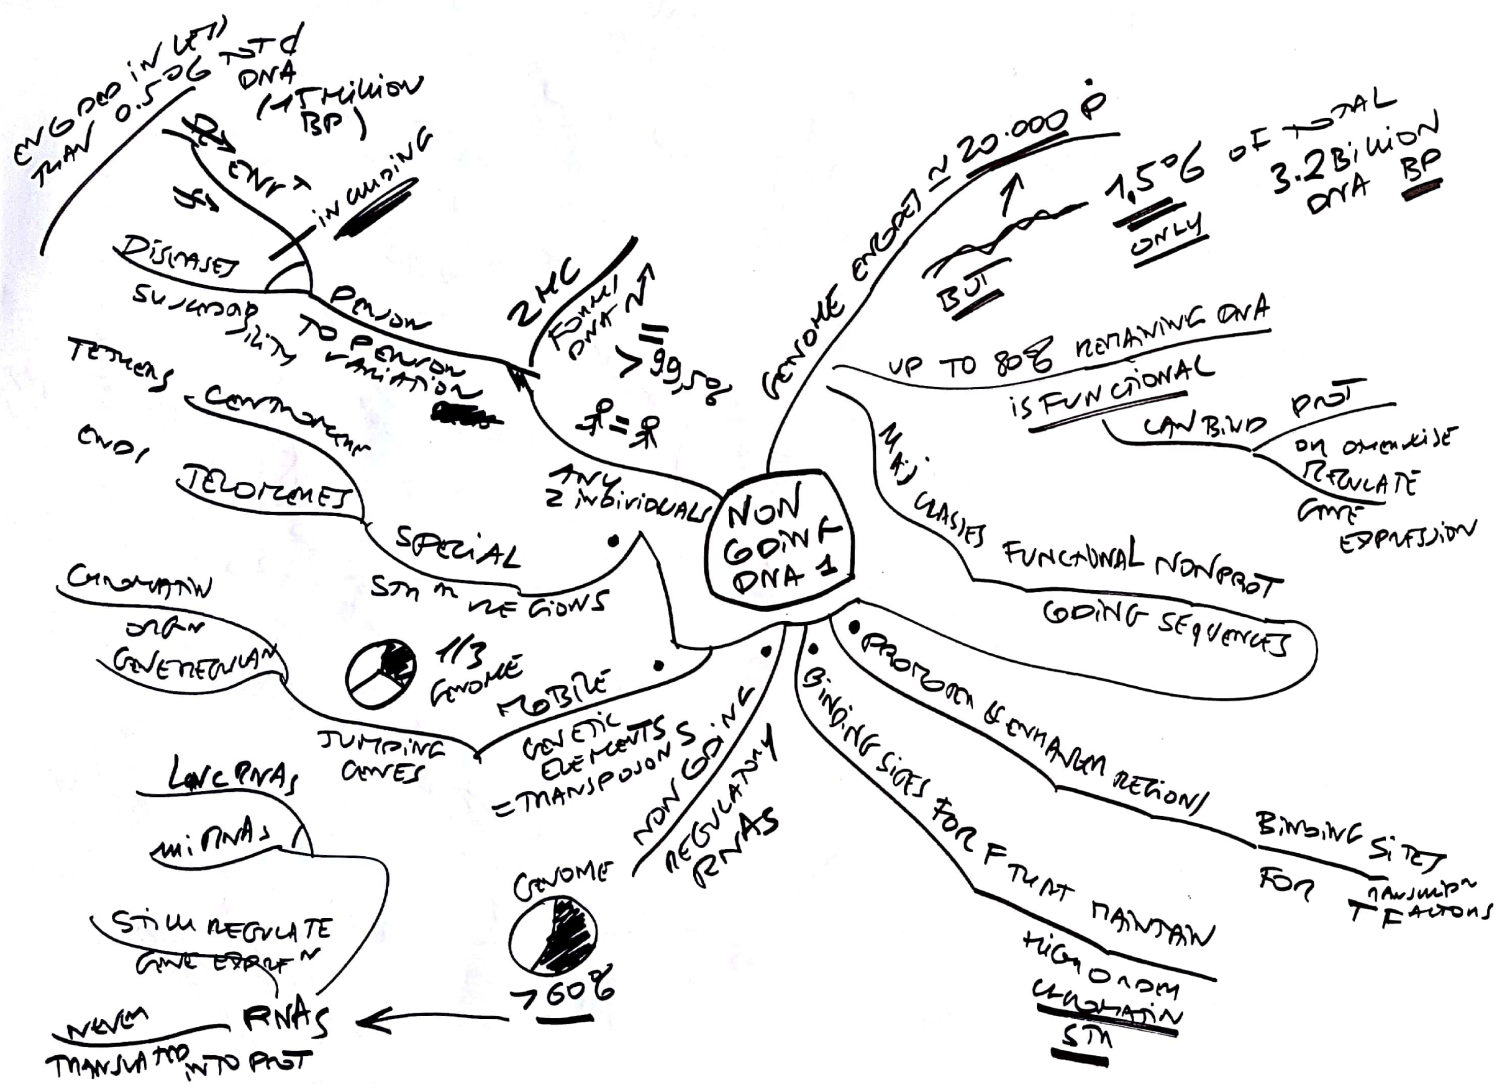 NON
CODING
DNA 1
GENOME ENCODES ≃ 20.000 P
BUT
1,5% OF TOTAL
ONLY
3.2 BILLION
DNA BP
UP TO 80% REMAINING DNA
IS FUNCTIONAL
CAN BIND PROT
OR OTHERWISE
REGULATE
GENE
EXPRESSION
MAJ. CLASSES
FUNCTIONAL NONPROT
CODING SEQUENCES
• PROMOTER & ENHANCER REGIONS
BINDING SITES
FOR TRANSCRIPN
FACTORS
• BINDING SITES FOR F THAT MAINTAIN
HIGH ORDER
CHROMATIN
STR
• NON CODING
REGULATORY
RNAS
GENOME
>60%
RNAS
NEVER
TRANSLATED INTO PROT
STILL REGULATE
GENE EXPRE N
miRNAs
LNC RNAs
• MOBILE
GENETIC
ELEMENTS
= TRANSPOSONS
1/3
GENOME
JUMPING
GENES
CHROMATIN
ORGN
GENE REGULAN
• SPECIAL
STR AL REGIONS
TELOMERES
ENDS
CENTROMERES
TETHERS
ANY
2 INDIVIDUALS
=
>99,5%
2 MC
FORMS
DNA N
PERSON
TO PERSON
VARIATION
DISEASES
SUSCEPTIBILITY
INCLUDING
ENCODED IN LESS
THAN 0.5% TOT
DNA
(15 MILLION
BP)